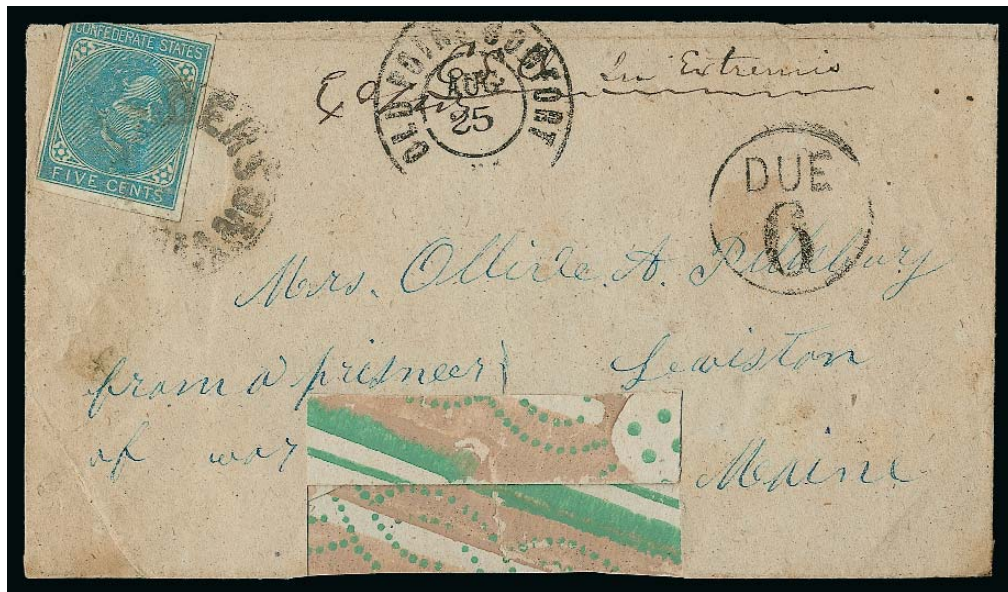 CONFEDERATE STATES
FIVE CENTS
OLD POINT COMFORT
AUG
25
In Extremis
DUE
6
Mrs. Ollivie A. Pillsbury
from a prisneer Lewiston
of war Maine